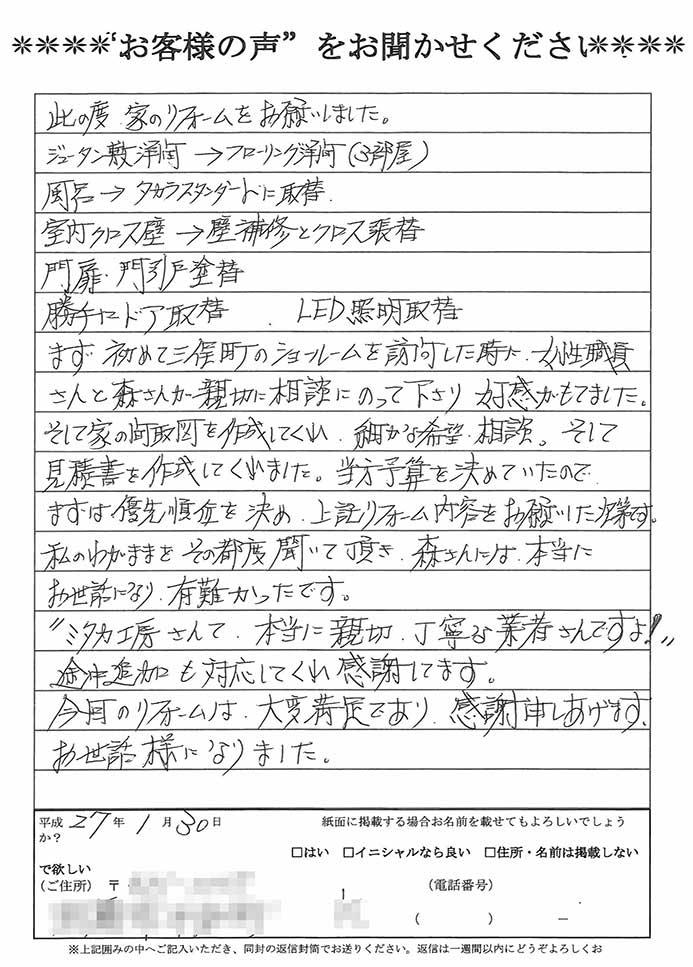 ****“お客様の声”をお聞かせください****
此の度 家のリフォームをお願いしました。
ジュータン敷洋間→フローリング洋間(3部屋)
風呂→タカラスタンダードに取替.
室内クロス壁→壁補修とクロス張替
門扉・門引戸塗替
勝手ドア取替 . LED照明取替
まず 初めて三俣町のショールームを訪問した時に、女性職員
さんと森さんが親切に相談にのって下さり 好感がもてました。
そして家の間取図を作成してくれ、細かな希望、相談。そして
見積書を作成してくれました。当方予算を決めていたので
まずは優先順位を決め、上記リフォーム内容をお願いした次第です。
私のわがままをその都度聞いて頂き、森さんには、本当に
お世話になり、有難かったです。
〝ミタカ工房さんて、本当に親切、丁寧な業者さんですよ!〟
途中追加にも対応してくれ感謝してます。
今回のリフォームは、大変満足であり、感謝申しあげます。
お世話様になりました。
平成27年1月30日 紙面に掲載する場合お名前を載せてもよろしいでしょう
か?
□はい □イニシャルなら良い □住所・名前は掲載しない
で欲しい
(ご住所) 〒 (電話番号)
( ) −
※上記囲みの中へご記入いただき、同封の返信封筒でお送りください。返信は一週間以内にどうぞよろしくお